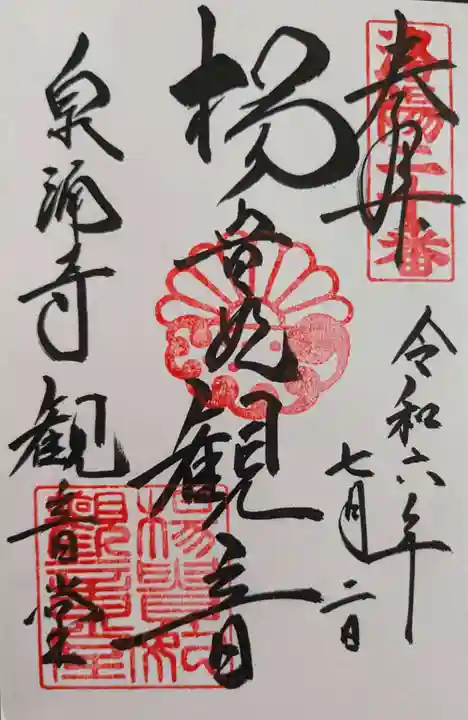 奉拝
洛陽二十番
令和六年
七月二日
楊貴妃観音
泉涌寺観音堂
楊貴妃
観音堂